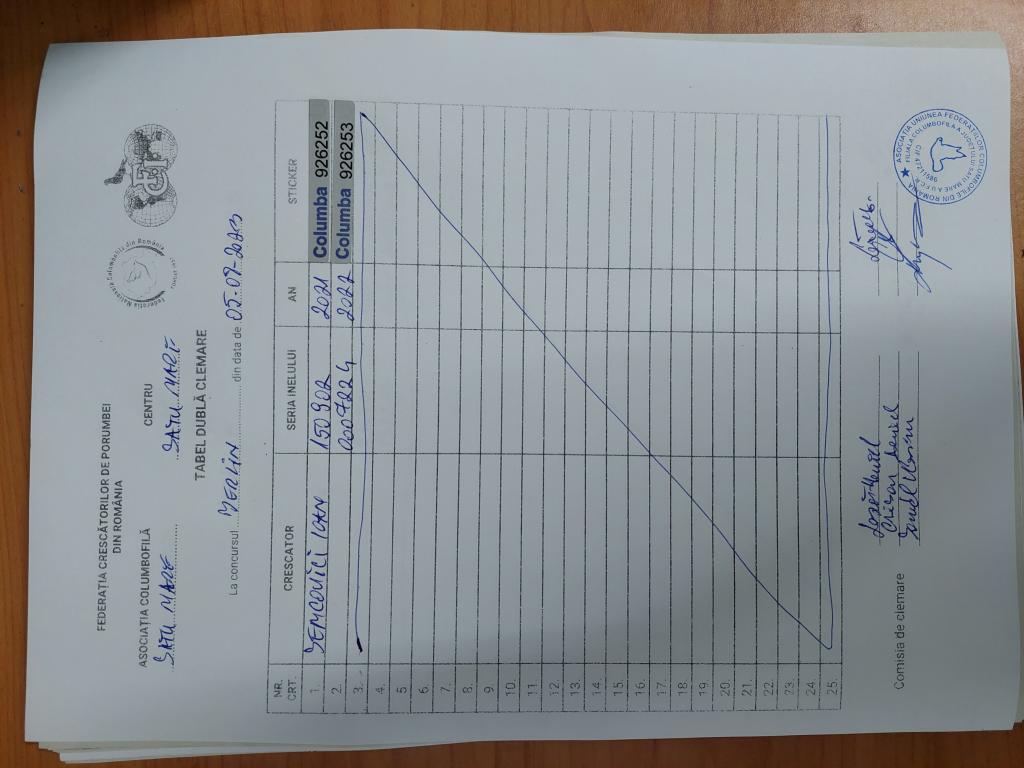 FEDERAȚIA CRESCĂTORILOR DE PORUMBEI
DIN ROMÂNIA
Federația Națională Columbofilă din România
ASOCIAȚIA COLUMBOFILĂ
SATU MARE
CENTRU
SATU MARE
TABEL DUBLĂ CLEMARE
La concursul BERLIN din data de 05-09-2023
NR. CRT. CRESCATOR SERIA INELULUI AN STICKER
1. SEMCOVICI IOAN 150902 2021 Columba 926252
2. 0007224 2022 Columba 926253
3.
4.
5
6.
7.
8.
9.
10.
11
12.
13.
14.
15.
16.
17.
18
19.
20.
21.
22.
23.
24.
25.
Comisia de clemare
ASOCIAȚIA UNIUNEA FEDERAȚIILOR COLUMBOFILE DIN ROMÂNIA
FILIALA COLUMBOFILĂ A JUDEȚULUI SATU MARE A U.F.C.R.